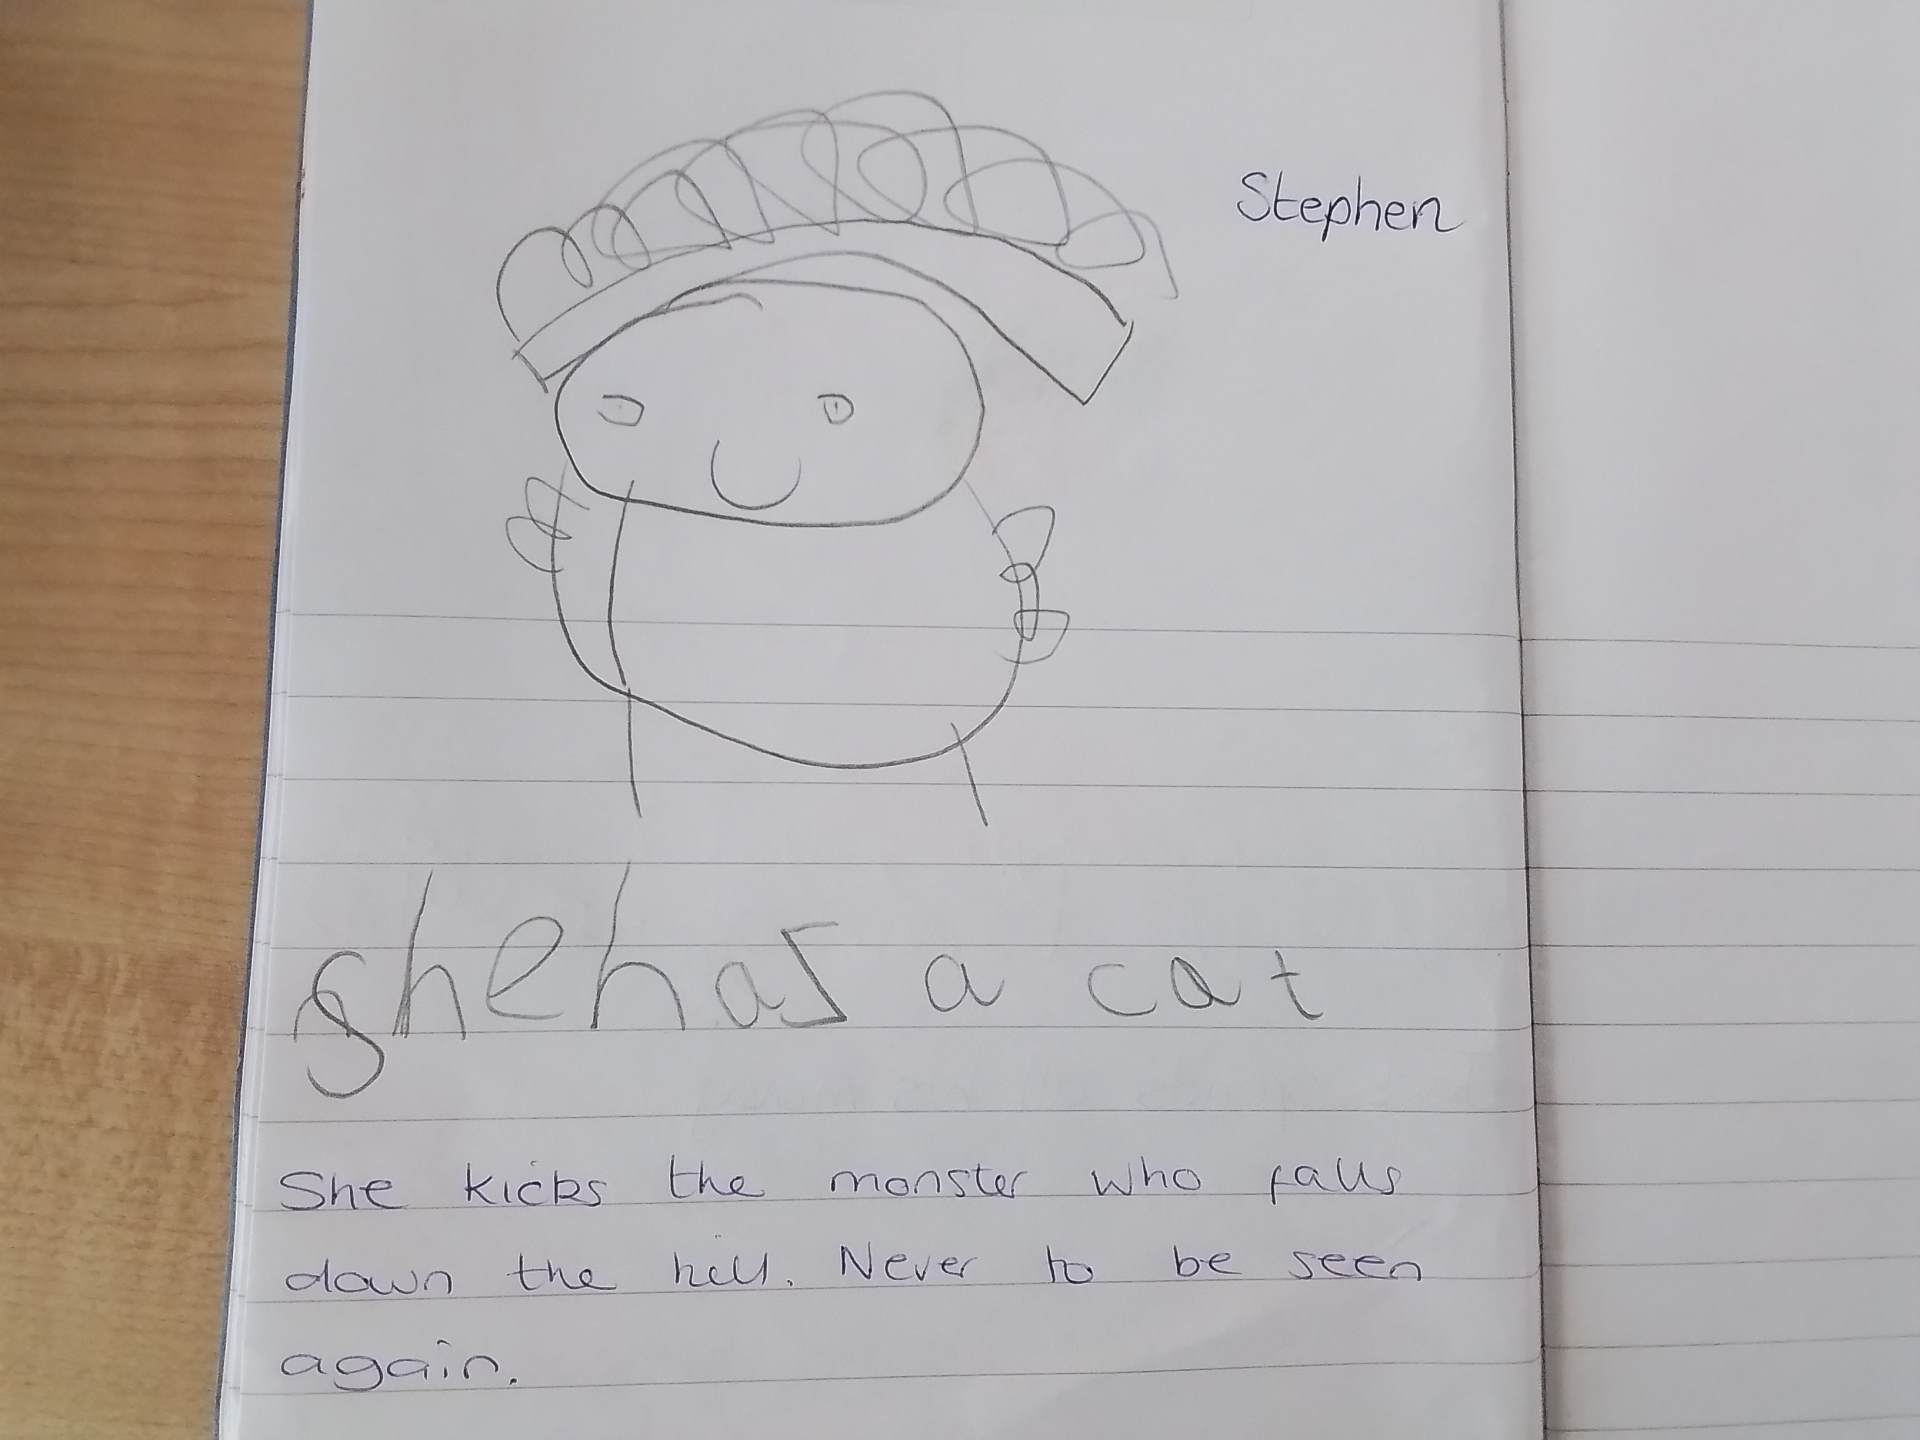 Stephen
shehas a cat
She kicks the monster who falls
down the hill. Never to be seen
again.